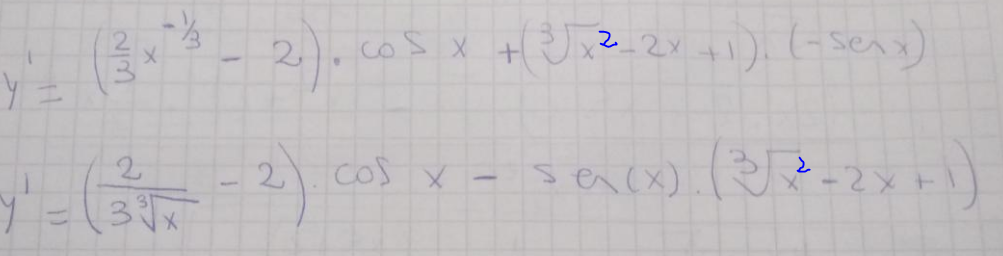 y' = (2/3 x^(-1/3) - 2) · cos x + (∛x² - 2x + 1) · (-sen x)
y' = (2/(3∛x) - 2) · cos x - sen(x) · (∛x² - 2x + 1)